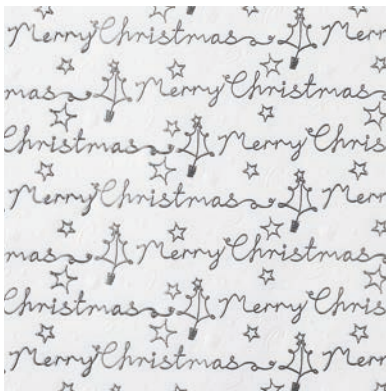 Merry Christmas Merr
mas Merry Christmas
Christmas Merry Chris
Merry Christmas Merr
mas Merry Christmas
Christmas Merry Chris
Merry Christmas Mer